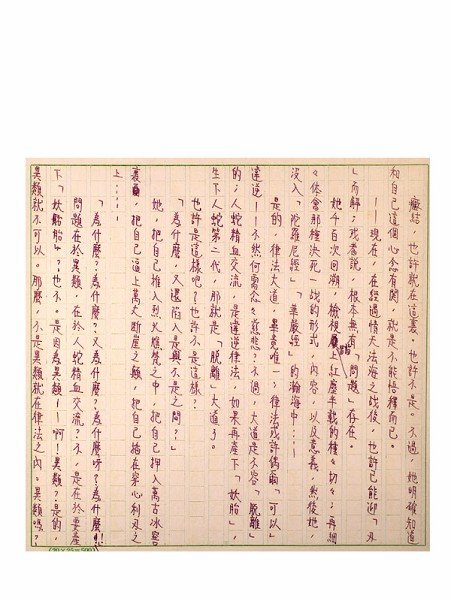 癥結,也許就在這裏。也許不是。不過,她明確知道
和自己這個心念有關,就是不能悟釋而已。
——現在,在經過情天法海之战後,也許已能迎「刃
」而解;或者說,根本無有「問題」存在。
她千百次回溯、檢視踏上紅塵半載的種々切々;再細
々体會那種決死一战的形式,內容,以及意義,然後她,
沒入「陀羅尼經」、「華嚴經」的瀚海中……
是的,律法大道,畢竟唯一;律法或許偶爾「可以」
違逆——不然何需忿々慈悲?不過,大道是不容「脫離」
的;人蛇精血交流,是違逆律法,如果再產下「妖胎」,
生下人蛇第二代,那就是「脫離」大道了。
也許是這樣吧?也許不是這樣?
「為什麼,又還陷入是與不是之間?」
她,把自己推入烈火燋焚之中,把自己押入萬古冰窖
裏,把自己逼上萬丈断崖之巔,把自己插在穿心利刃之
上……
「為什麼?為什麼?又為什麼?為什麼呀?為什麼!!」
問題在於異類,在於人蛇精血交流?不,是在於要產
下「妖胎胎」?也不。是因為異類——啊!異類?是的,
異類就不可以。那麼,不是異類就在律法之內。異類嗎?
(20×25=500)